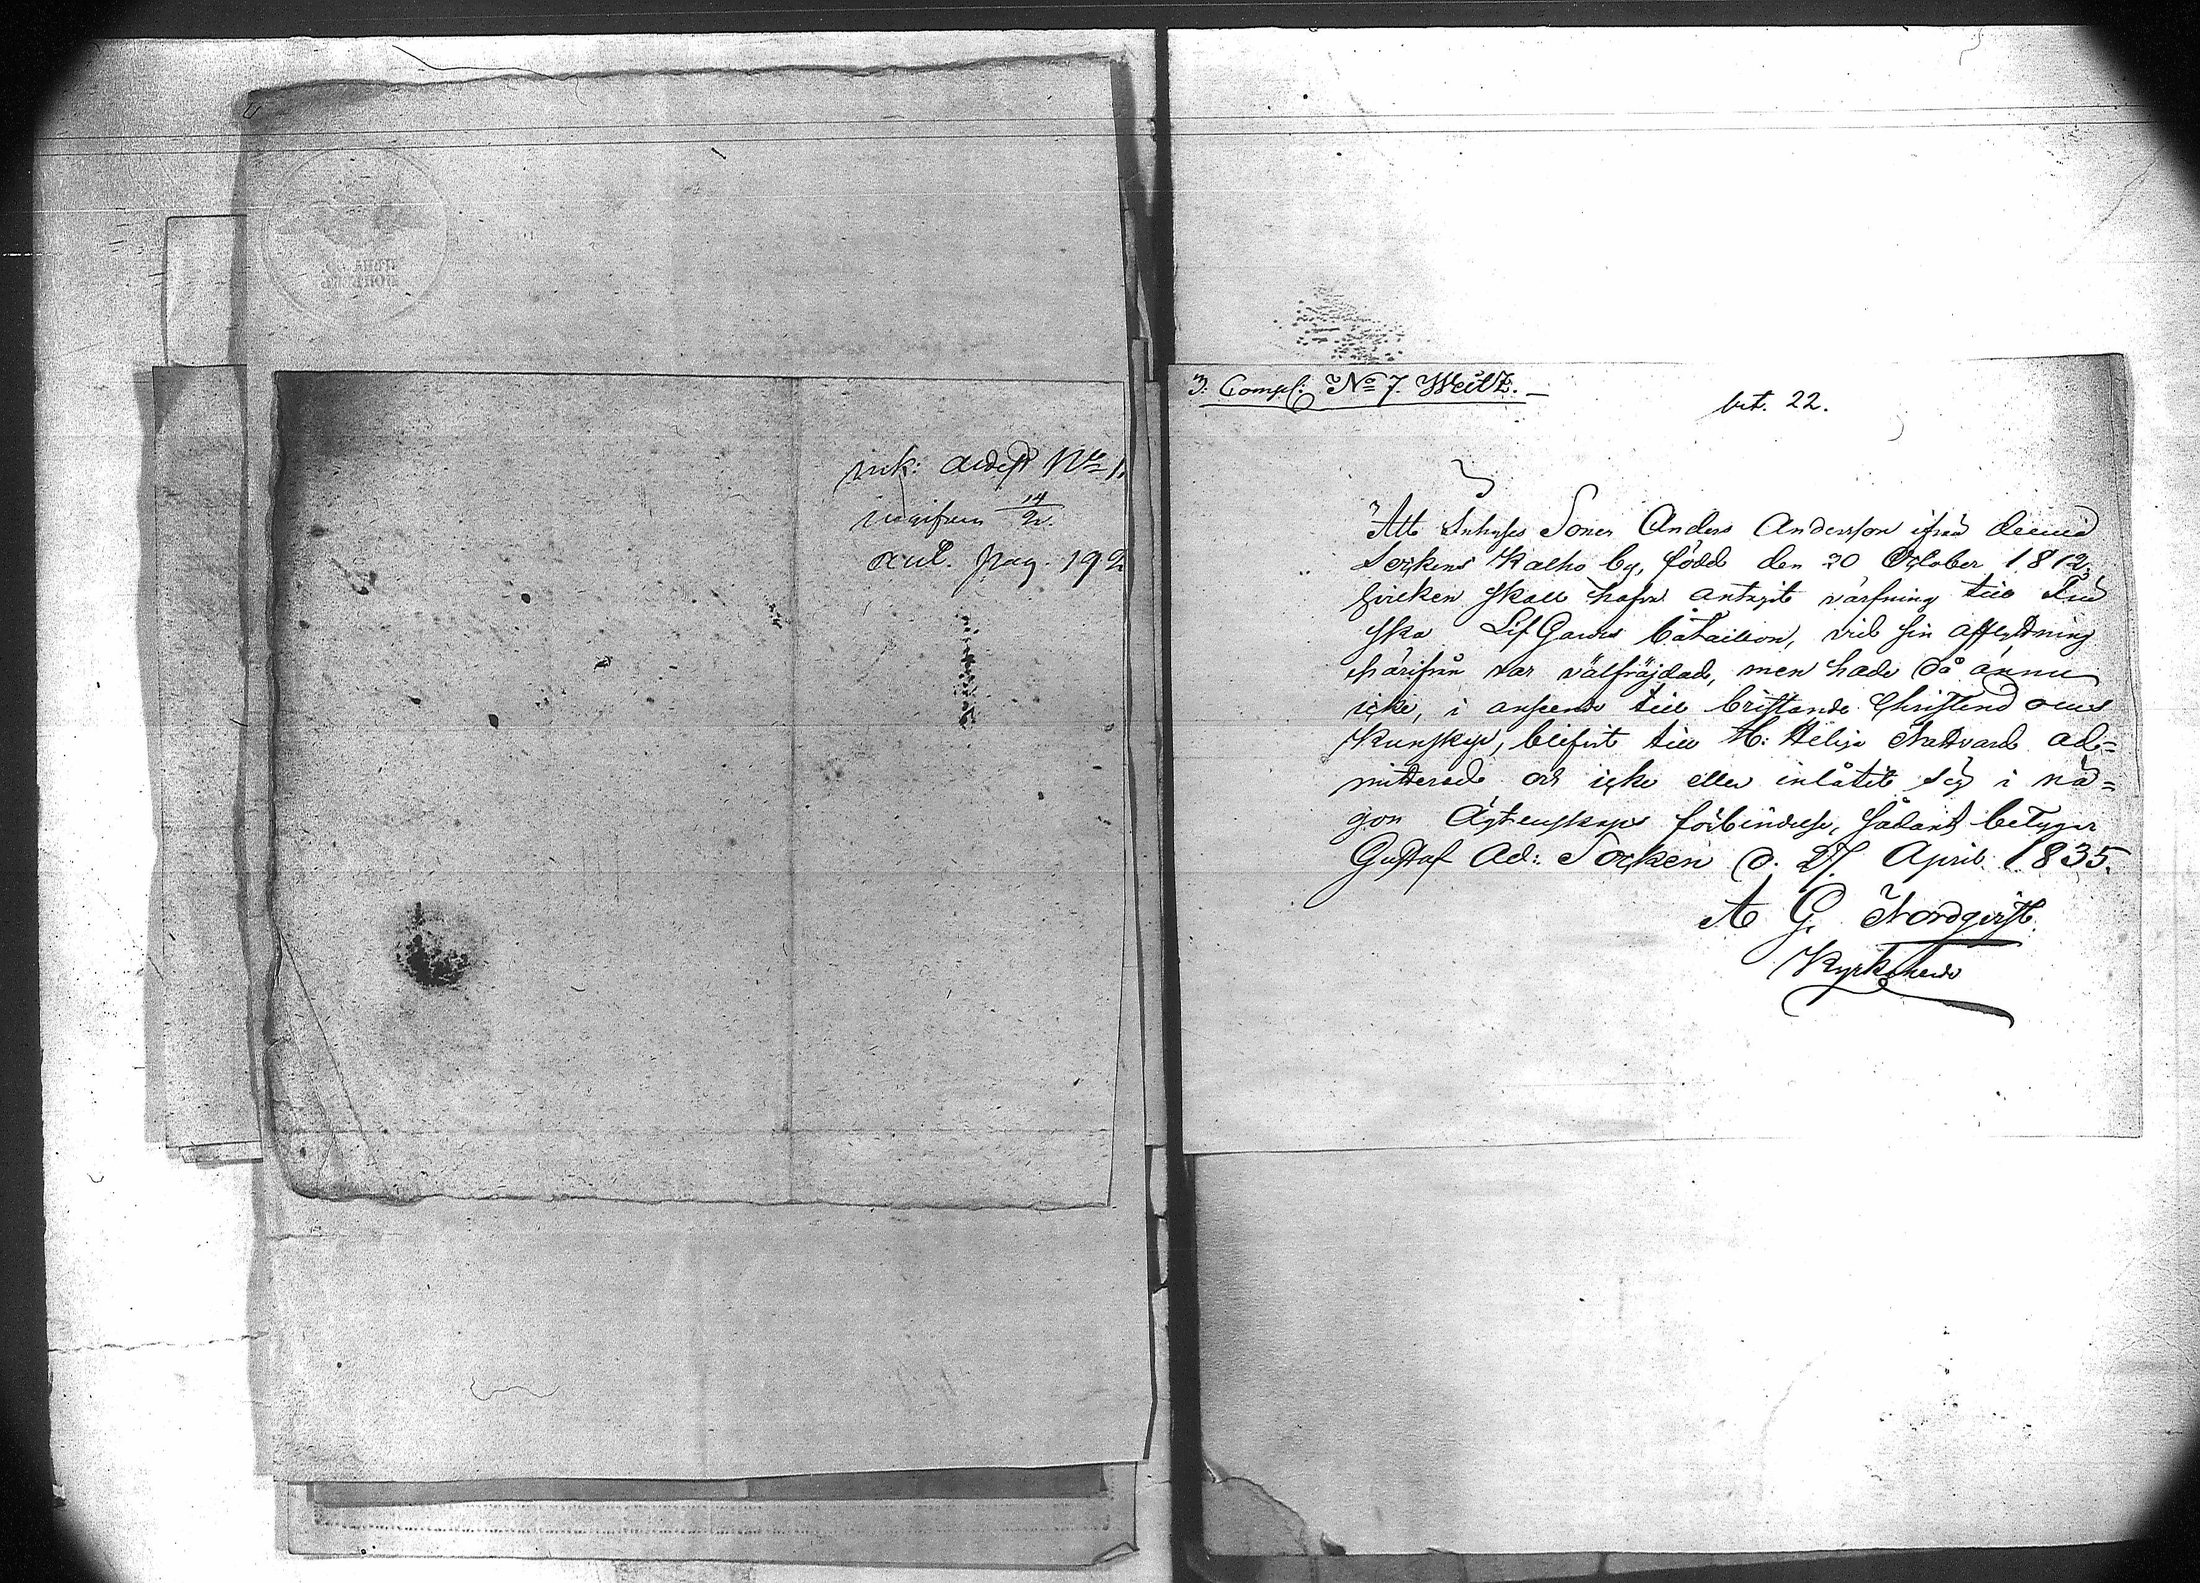 ЦѢНА
КОПѢЕКЪ
ink: N:o 1.
14/2.
pag. 192
3. Comp: N:o 7. Weitz.
bet. 22.
Att Inhyses Sonen Anders Andersson ifrån denna
Sockens Kalho by, född den 20 October 1812,
hvilken skall hafva antagit värfning till Fin
ska Lif Gardes bataillon, vid sin afflyttning
härifrån var välfräjdad, men hade då ännu
icke, i anseende till bristande Christendoms
Kunskap, blifvit till H: Heliga Nattvard ad=
mitterad och icke eller inlåtit sig i nå=
gon Ägtenskaps förbindelse, sådant betygar
Gustaf Ad: Socken d. 27 April 1835.
A G Nordqvist.
Kyrkoherde